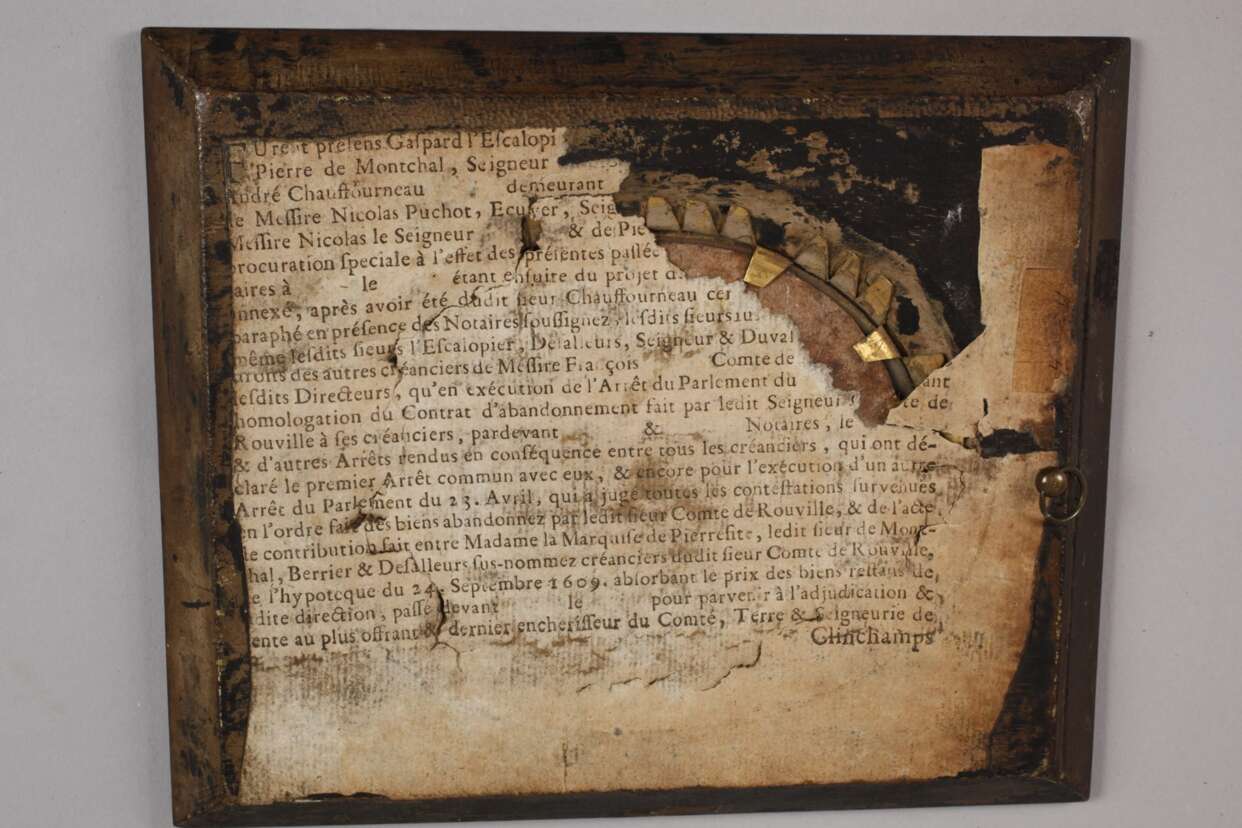 Urent presens Gaspard l'Escalopi
Pierre de Montchal, Seigneur
André Chauffourneau demeurant
de Messire Nicolas Puchot, Ecuyer, Seig
Messire Nicolas le Seigneur & de Pie
procuration speciale à l'effet des présentes passée
aires à le étant ensuite du projet d
annexé, après avoir été dudit sieur Chauffourneau cer
paraphé en présence des Notaires soussignez, lesdits sieurs
même lesdits sieurs l'Escalopier, Desalleurs, Seigneur & Duval
droits des autres créanciers de Messire François Comte de
lesdits Directeurs, qu'en exécution de l'Arrêt du Parlement du ant
homologation du Contrat d'abandonnement fait par ledit Seigneur te de
Rouville à ses créanciers, pardevant & Notaires, le
& d'autres Arrêts rendus en conséquence entre tous les créanciers, qui ont dé-
claré le premier Arrêt commun avec eux, & encore pour l'exécution d'un autre
Arrêt du Parlement du 23. Avril, qui a jugé toutes les contestations survenues
en l'ordre fait des biens abandonnez par ledit sieur Comte de Rouville, & de l'acte
de contribution fait entre Madame la Marquise de Pierrefite, ledit sieur de Mont-
chal, Berrier & Desalleurs sus-nommez créanciers dudit sieur Comte de Rouville,
e l'hypoteque du 24. Septembre 1609. absorbant le prix des biens restans de
ladite direction, passé devant le pour parvenir à l'adjudication &
vente au plus offrant & dernier encherisseur du Comté, Terre & Seigneurie de
Clinchamps